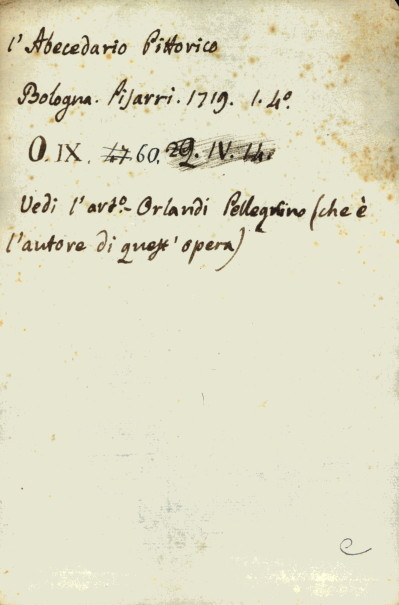 l'Abecedario Pittorico
Bologna. Pisarri. 1719. 1. 4º.
O. IX. 47 60. 29. IV. 14.
Vedi l'artº. Orlandi Pellegrino (che è
l'autore di quest'opera)
e